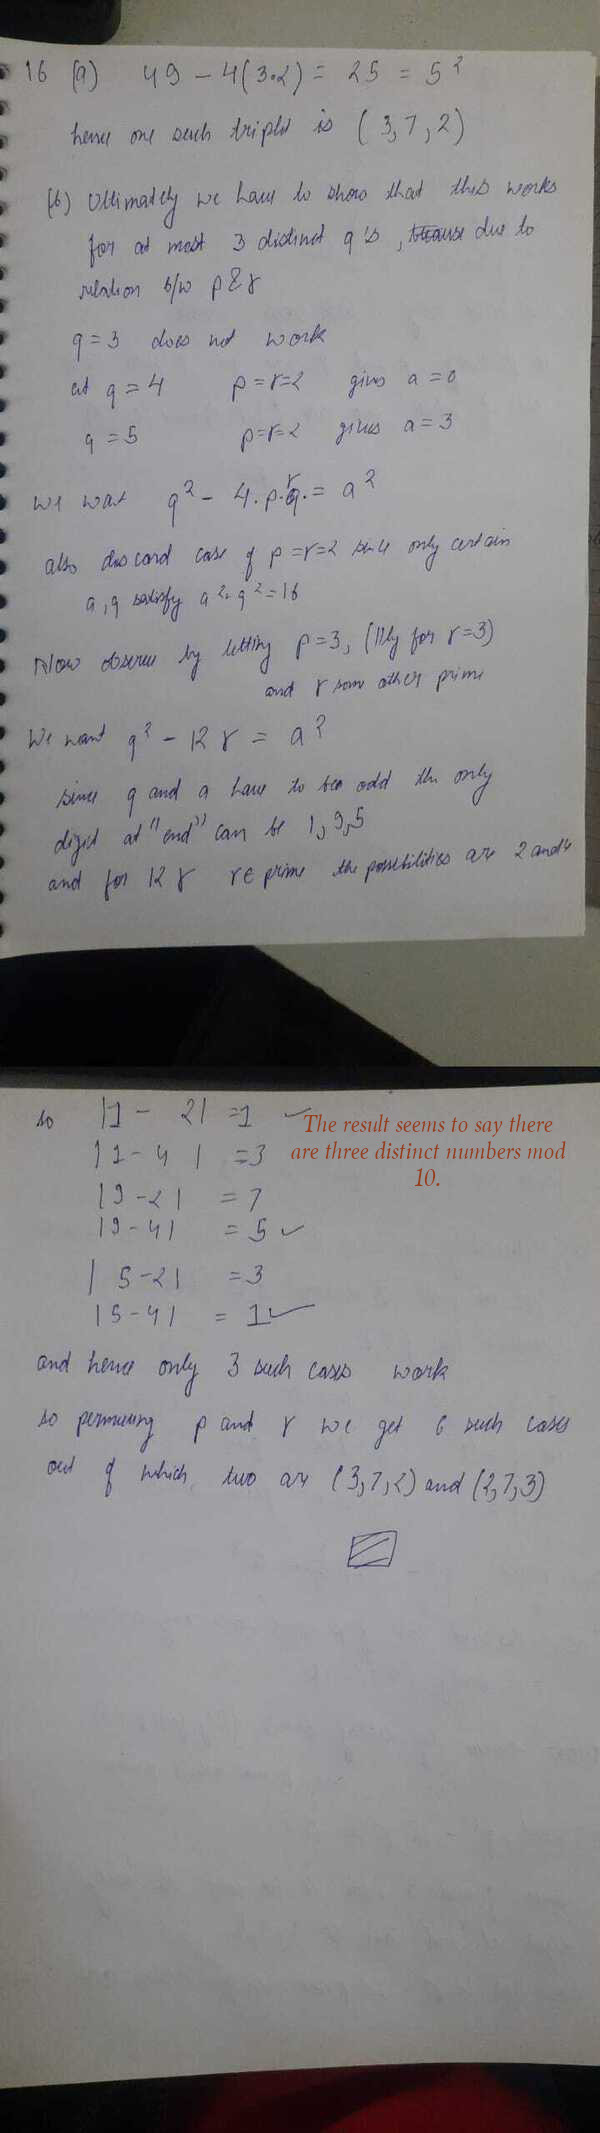 16 (a) 49 - 4(3·2) = 25 = 5²
hence one such triplet is (3,7,2)
(b) Ultimately we have to show that this works
for at most 3 distinct q's, because due to
relation b/w p & r
q=3 does not work
at q=4 p=r=2 gives a=0
q=5 p=r=2 gives a=3
we want q² - 4·p·r = a²
also discard case of p=r=2 since only certain
a, q satisfy a²-q²=16
Now observe by letting p=3, (llly for r=3)
and r some other prime
We want q² - 12r = a²
since q and a have to be odd the only
digit at "end" can be 1,9,5
and for 12r r∈prime the possibilities are 2 and 4
so |1-2| =1 ✓
|1-4| =3
|9-2| =7
|9-4| =5 ✓
|5-2| =3
|5-4| =1 ✓
The result seems to say there
are three distinct numbers mod
10.
and hence only 3 such cases work
so permuting p and r we get 6 such cases
out of which two are (3,7,2) and (2,7,3)